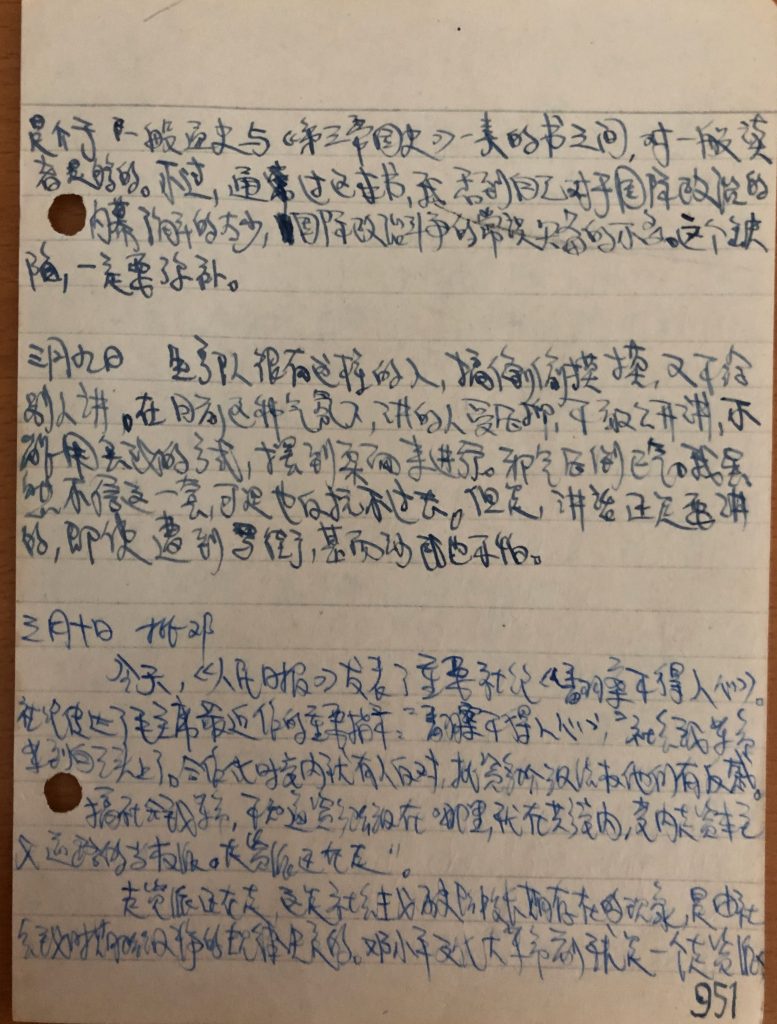 是介于一般通史与《第三帝国史》一类的书之间,对一般读
者是够的。不过,通过这本书,我看到自己对于国际政治的
内幕了解的太少,国际政治斗争的常识欠备的不多。这个缺
陷,一定要弥补。
三月九日 生产队很有这样的人,搞偷偷摸摸,又不给
别人讲。在目前这种气氛下,讲的人受压抑,不敢公开讲,不
能用会议的方式,摆到桌面来进行。邪气压倒正气。我虽
然不信这一套,可是也反抗不过去。但是,讲话还是要讲
的,即使遭到,甚而也不怕。
三月十日 批邓
今天,《人民日报》发表了重要社论《翻案不得人心》。
社论传达了毛主席最近作的重要指示:“翻案不得人心”,“社会主义革命
革到自己头上了。合作化时党内就有人反对,批资产阶级法权他们有反感。
搞社会主义革命,不知道资产阶级在哪里,就在共产党内,党内走资本主
义道路的当权派。走资派还在走”。
走资派还在走,是社会主义历史阶段长期存在的现象,是由社
会主义时期阶级斗争的规律决定的。邓小平文化大革命前就是一个走资派
951